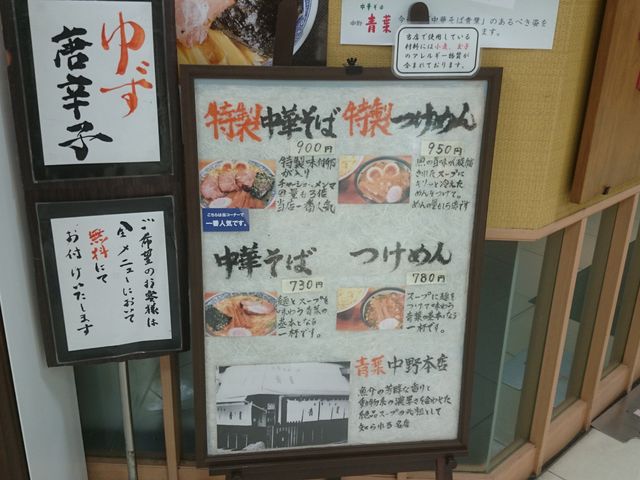 ゆず
唐辛子
ご希望のお客様は
全メニューにおいて
無料にて
お付けいたします
中華そば
中野 青葉
「中華そば青葉」のあるべき姿を
ます。
当店で使用している
材料には小麦、玉子
のアレルギー物質が
含まれております。
特製中華そば
900円
特製味付卵
が入り
チャーシュー、メンマ
の量も3倍
当店一番人気
こちらは当コーナーで
一番人気です。
特製つけめん
950円
スープに
キリッと冷えた
めんをつけて。
めんの量も1.5倍です
中華そば
730円
麺とスープを
味わう青葉の
基本となる
一杯です。
つけめん
780円
スープに麺を
つけて味わう
青葉の基本となる
一杯です。
青葉 中野本店
魚介の芳醇な香りと
動物系の濃厚さを合わせた
絶品スープの元祖として
知られる名店